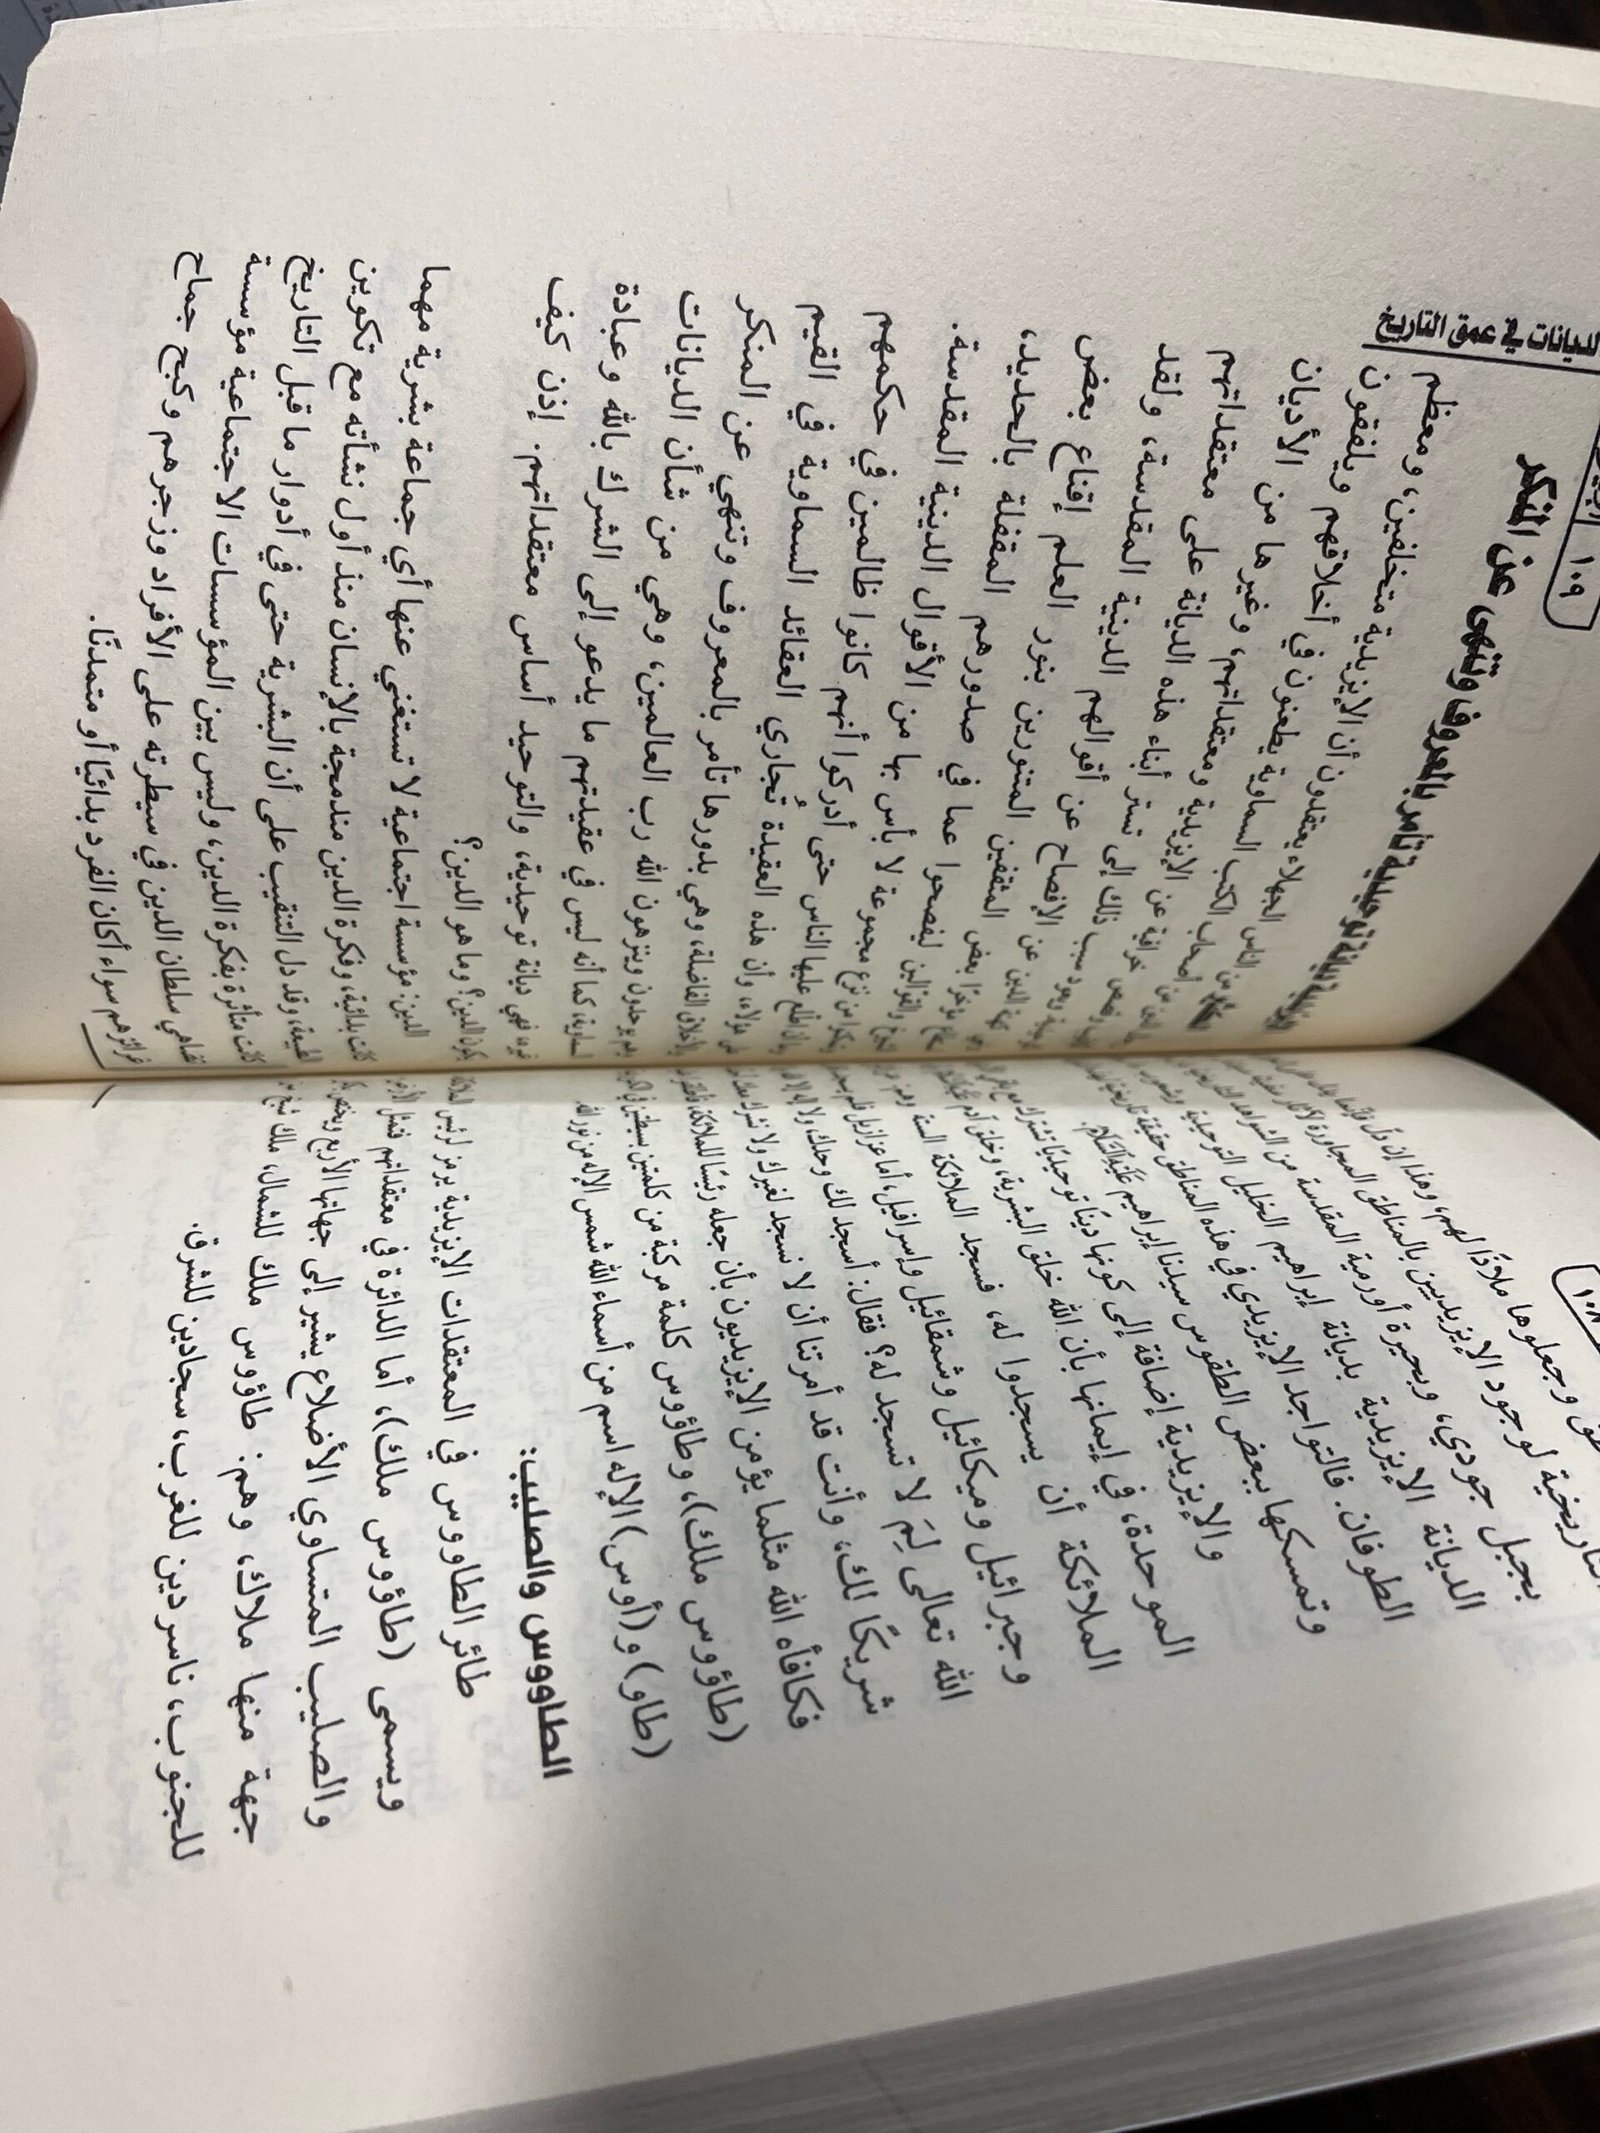 ١٠٨
وجعلوها ملاذًا لهم، وهذا إن دل فإنما يدل على
التاريخية لوجود الإيزيديين بالمناطق المجاورة
بجبل جودي، وبحيرة أورمية المقدسة من الشواهد
الديانة الإيزيدية بديانة إبراهيم الخليل التوحيدية
الطوفان. فالتواجد الإيزيدي في هذه المناطق حقيقة تاريخية
وتمسكها ببعض الطقوس سيدنا إبراهيم عَلَيْهِ السَّلَامُ.
والإيزيدية إضافة إلى كونها دينًا توحيديًا تشترك مع
الموحدة، في إيمانها بأن الله خلق البشرية، وخلق آدم
الملائكة أن يسجدوا له، فسجد الملائكة الستة وهم
وجبرائيل وميكائيل وشمقائيل وإسرافيل، أما عزازيل فلم يسجد
الله تعالى لِمَ لا تسجد له؟ فقال: أسجد لك وحدك، ولا إله إلا
شريكًا لك، وأنت قد أمرتنا أن لا نسجد لغيرك ولا نشرك
فكافأه الله مثلما يؤمن الإيزيديون بأن جعله رئيسًا للملائكة،
(طاؤوس ملك)، وطاؤوس كلمة مركبة من كلمتين بسيطتين في
(طاو) و(أوس) الإله اسم من أسماء الله شمس الإله من نور الله.
الطاووس والصليب:
طائر الطاووس في المعتقدات الإيزيدية يرمز لرئيس
ويسمى (طاؤوس ملك)، أما الدائرة في معتقداتهم فتمثل
والصليب المتساوي الأضلاع يشير إلى جهاتها الأربع ويختص
جهة منها ملاك، وهم: طاؤوس ملك للشمال، ملك
للجنوب، ناسردين للغرب، سجادين للشرق.
للديانات في عمق التاريخ
١٠٩
ديانة توحيدية تأمر بالمعروف وتنهى عن المنكر
من الناس الجهلاء يعتقدون أن الإيزيدية متخلفين، ومعظم
أصحاب الكتب السماوية يطعنون في أخلاقهم ويلفقون
خرافية عن الإيزيدية ومعتقداتهم، وغيرها من الأديان
ويعود سبب ذلك إلى تستر أبناء هذه الديانة على معتقداتهم
عن الإفصاح عن أقوالهم الدينية المقدسة، ولقد
بعض المثقفين المتنورين بنور العلم إقناع بعض
ليفصحوا عما في صدورهم المقفلة بالحديد،
من نزع مجموعة لا بأس بها من الأقوال الدينية المقدسة.
اطلع عليها الناس حتى أدركوا أنهم كانوا ظالمين في حكمهم
على هؤلاء، وأن هذه العقيدة تُجاري العقائد السماوية في القيم
والأخلاق الفاضلة، وهي بدورها تأمر بالمعروف وتنهي عن المنكر
يوحدون وينزهون الله رب العالمين، وهي من شأن الديانات
السماوية، كما أنه ليس في عقيدتهم ما يدعو إلى الشرك بالله وعبادة
غيره فهي ديانة توحيدية، والتوحيد أساس معتقداتهم. إذن كيف
يكون الدين؟ وما هو الدين؟
الدين: مؤسسة اجتماعية لا تستغني عنها أي جماعة بشرية مهما
كانت بدائية، وفكرة الدين مندمجة بالإنسان منذ أول نشأته مع تكوين
الطبيعة، وقد دل التنقيب على أن البشرية حتى في أدوار ما قبل التاريخ
كانت متأثرة بفكرة الدين، وليس بين المؤسسات الاجتماعية مؤسسة
تضاهي سلطان الدين في سيطرته على الأفراد وزجرهم وكبح جماح
غرائزهم سواء أكان الفرد بدائيًا أو متمدنًا.